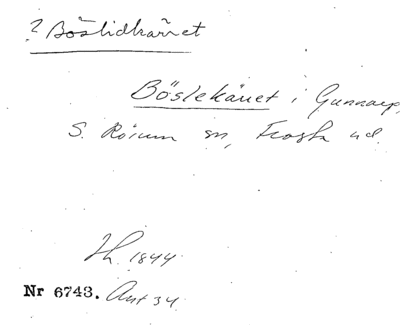 ? Böslidkärret
Böslekärret i Gunnarp,
S. Rörum sn, Frosta hd.
Jh. 1844
Nr 6743. Ant 34